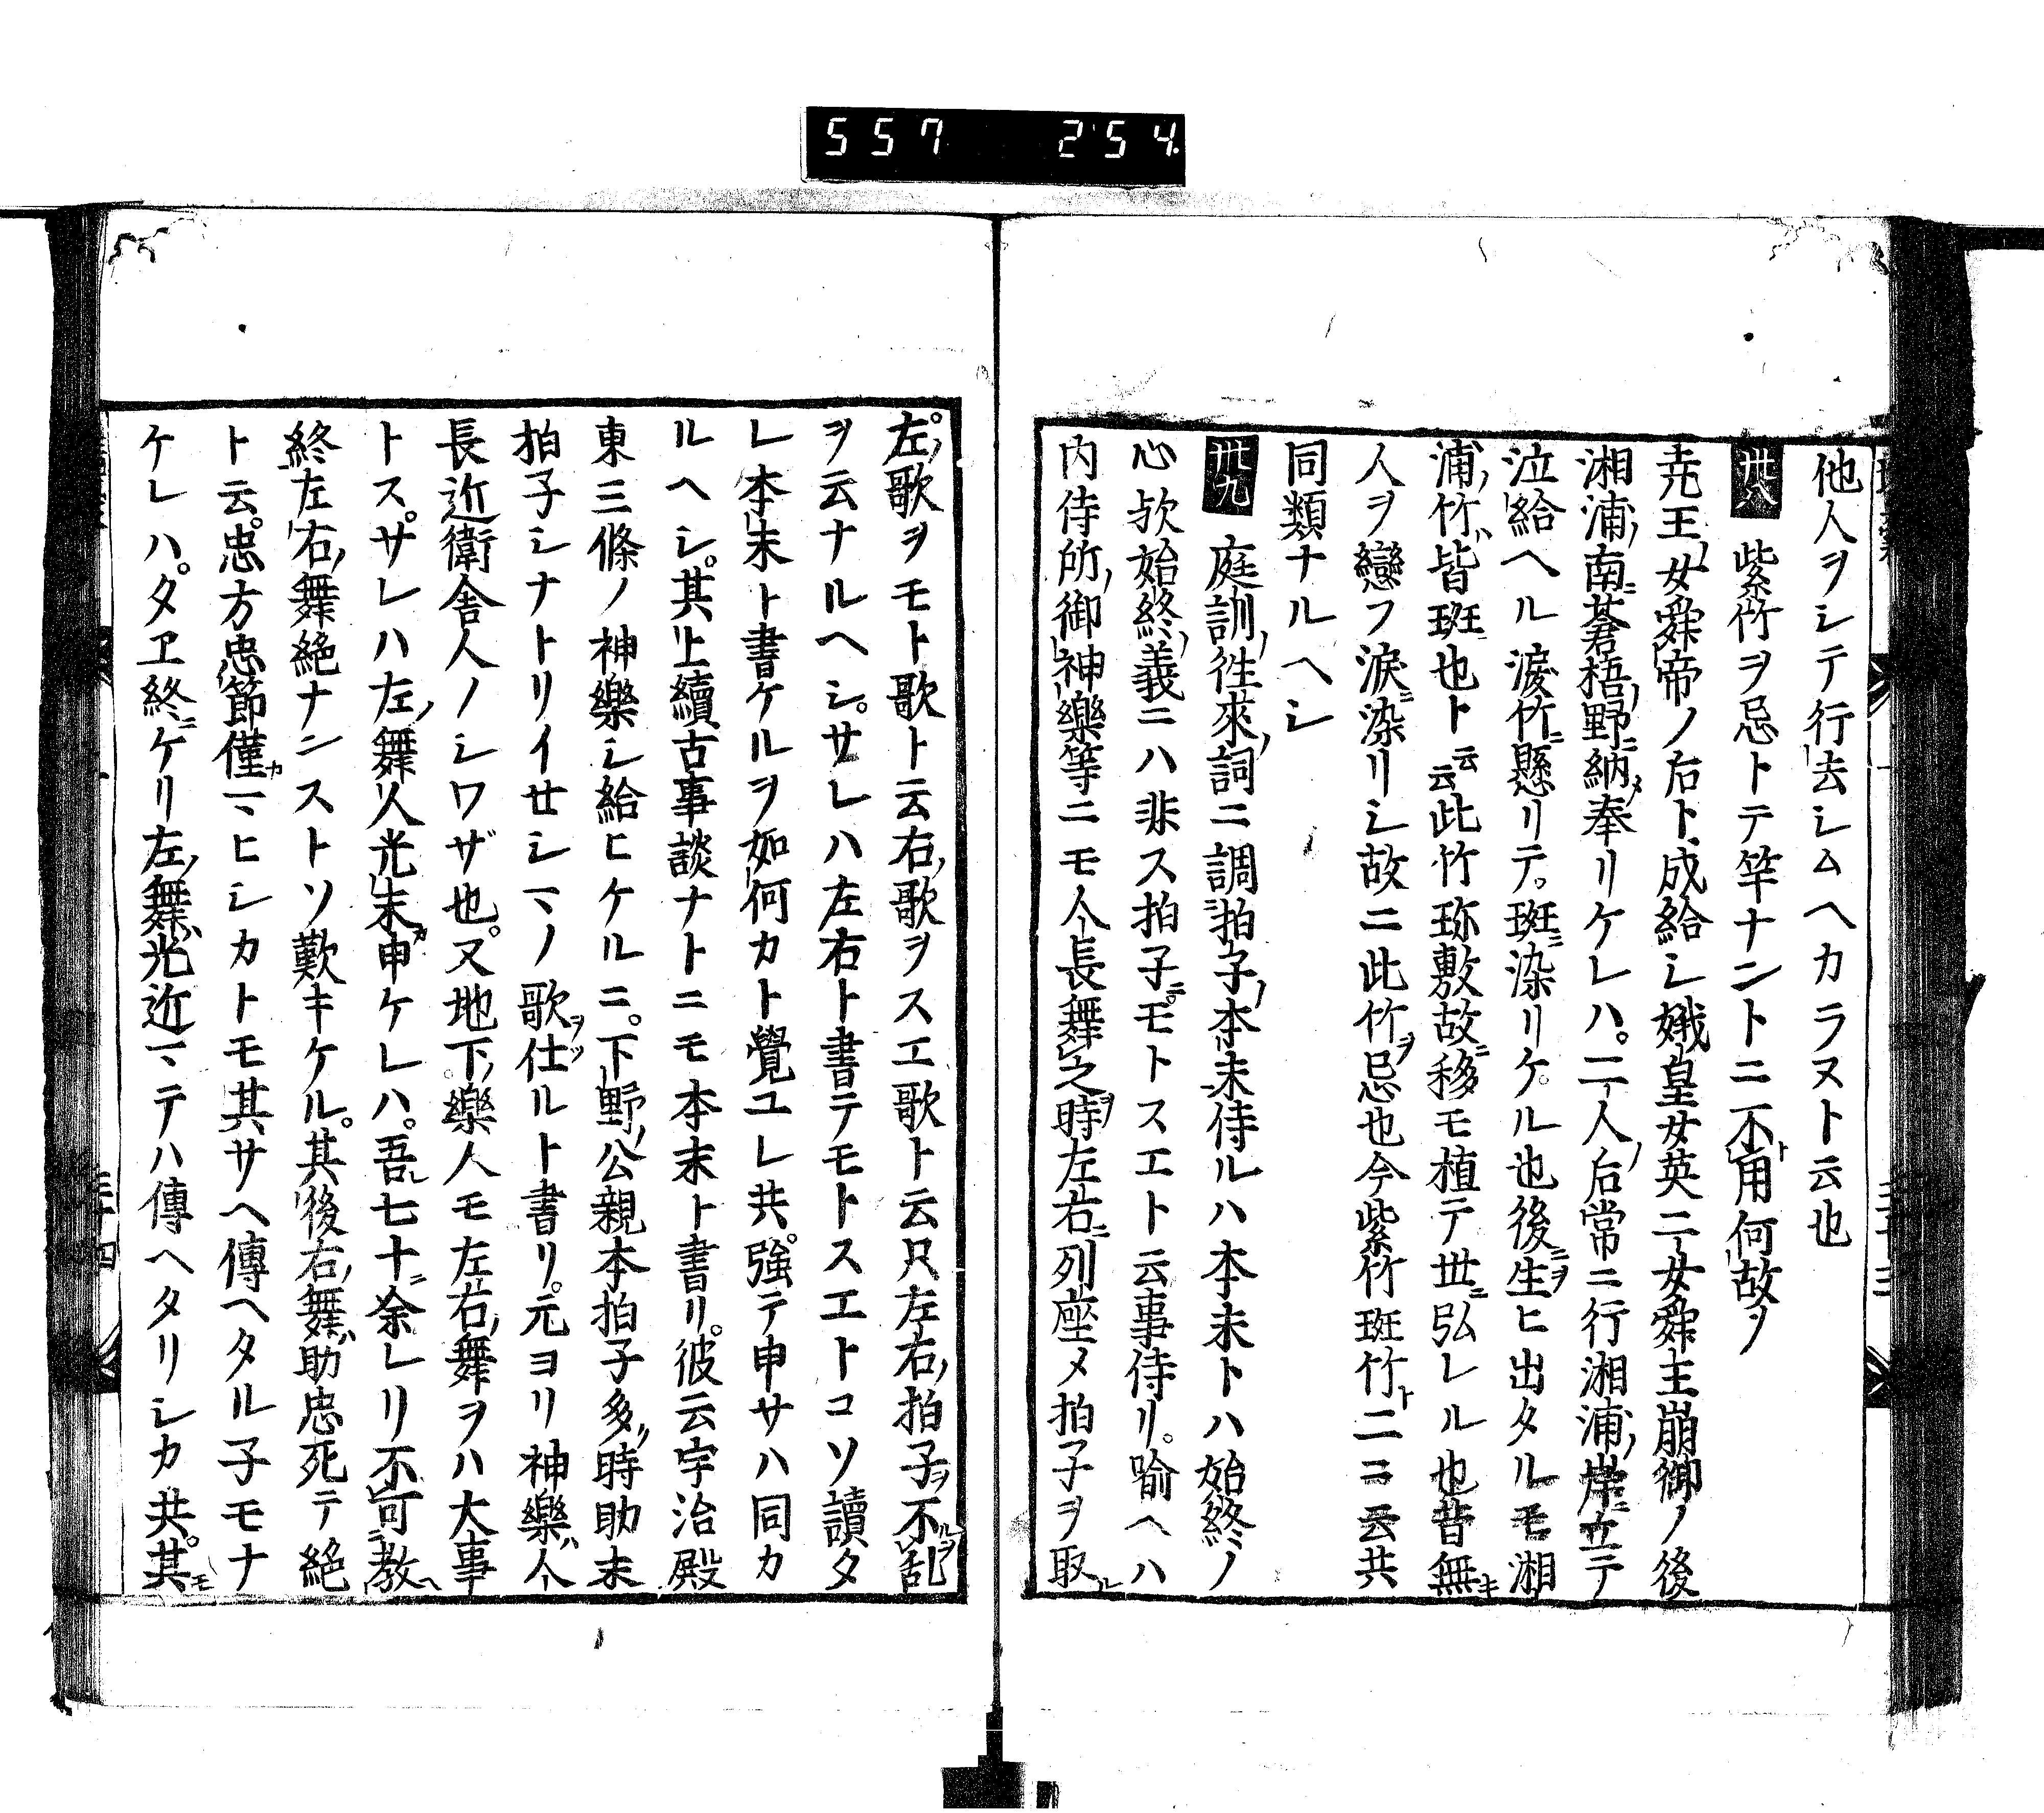 557 254
他人ヲシテ行去シムヘカラヌト云也
卅八 紫竹ヲ忌トテ竿ナントニ不用ト何故ソ
尭王ノ女舜帝ノ后ト成給シ娥皇女英二女舜主崩御ノ後
湘浦ノ南ニ蒼梧ノ野ニ納メ奉リケレハ。二人ノ后常ニ行湘浦ノ岸ニ立テ
泣給ヘル涙竹ニ懸リテ。斑ニ染リケル也後ニ生ヲヒ出タルモ湘
浦ノ竹ハ皆斑也ト云云此竹珎敷故ニ移モ植テ世ニ弘レル也昔無キ
人ヲ戀フ涙ニ染リシ故ニ此竹ヲ忌也今紫竹斑竹ト二コ云共
同類ナルヘシ
卅九 庭訓ノ徃來ノ詞ニ調拍子ノ本末侍ルハ本末トハ始終ノ
心欤始終ノ義ニハ非ス拍子ニモトスエト云事侍リ。喩ヘハ
内侍所ノ御神樂等ニモ人長舞之時ヲ左右ニ列座メ拍子ヲ取ル
左ノ歌ヲモト歌ト云右ノ歌ヲスエ歌ト云只左右ノ拍子ヲ不乱ルヲ
ヲ云ナルヘシ。サレハ左右ト書テモトスエトコソ讀タ
レ本末ト書ケルヲ如何カト覺ユレ共。強テ申サハ同カ
ルヘシ。其上續古事談ナトニモ本末ト書リ。彼云宇治殿
東三條ノ神樂シ給ヒケルニ。下野ノ公親本拍子多ノ時助末
拍子シナトリイせシマノ歌ヲ仕ツルト書リ。元ヨリ神樂ハ人
長近衛舎人ノシワザ也。又地下ノ樂人モ左右ノ舞ヲハ大事
トス。サレハ左ノ舞人光末カ申ケレハ。吾レ七十ニ余レリ不可教ヘ
終左右ノ舞絶ナンストソ歎キケル。其後右ノ舞ハ助忠死テ絶
ト云。忠方忠節僅カマヒシカトモ其サヘ傳ヘタル子モナ
ケレハ。タヱ終ニケリ左ノ舞ハ光近マテハ傳ヘタリシカ共。其モ